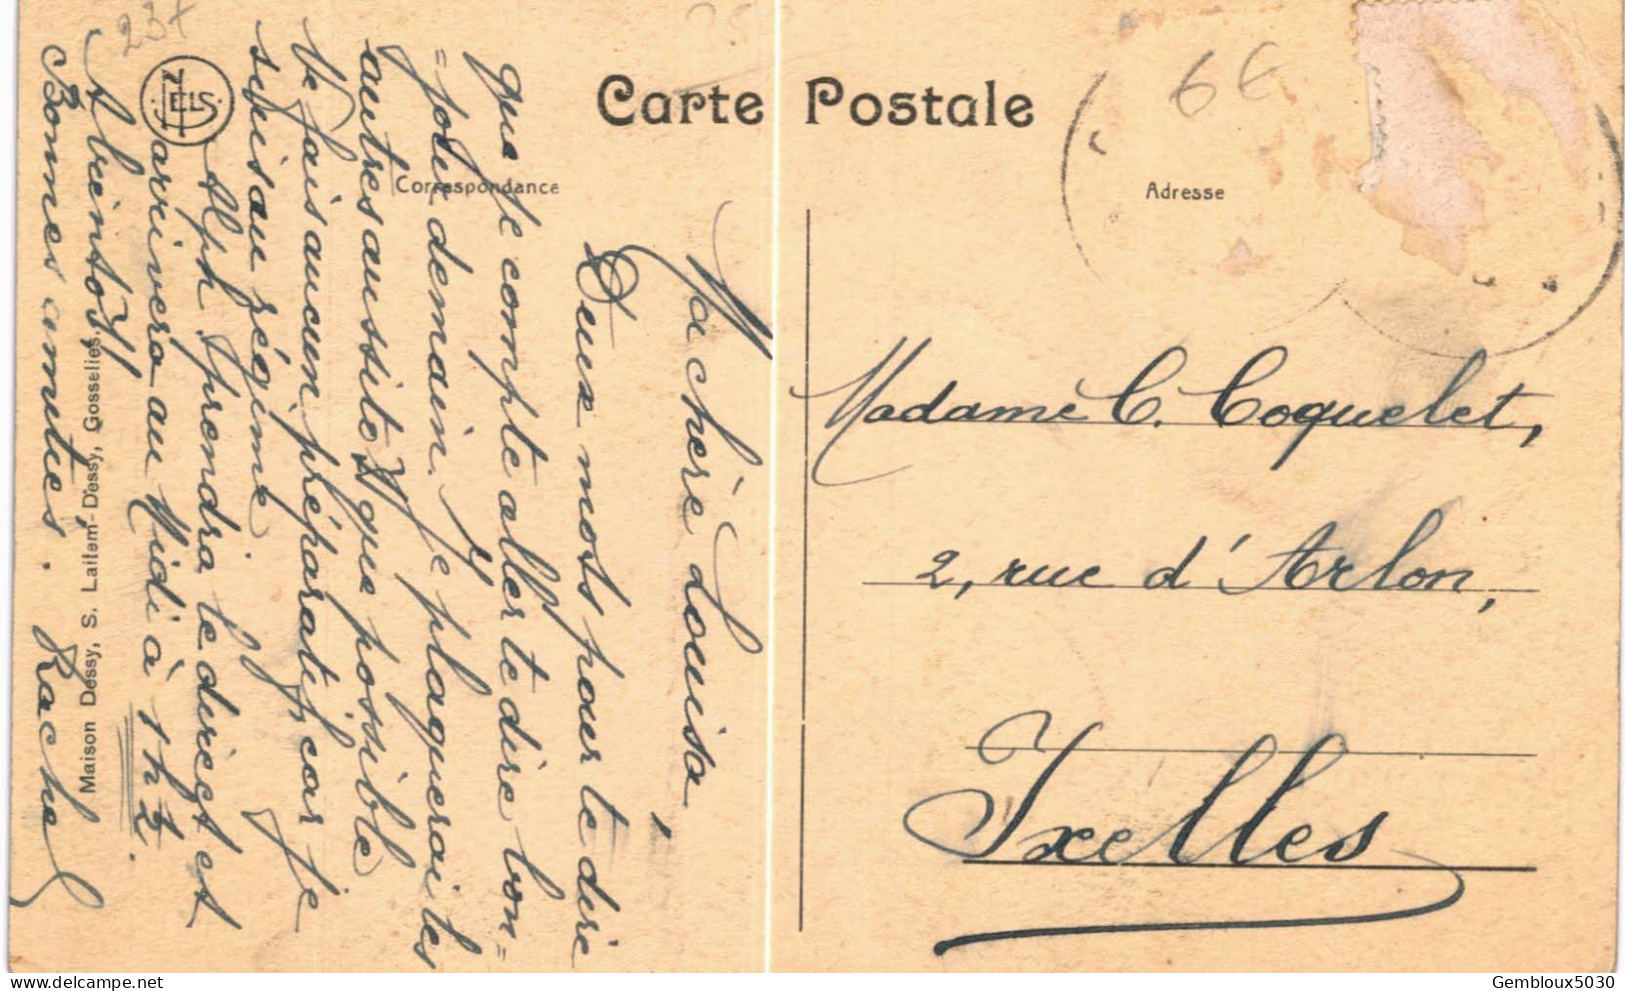 237
6 €
Carte Postale
Correspondance
Adresse
NELS
Ma chère Louisa,
Deux mots pour te dire
que je compte aller te dire bon=
=jour demain. Je plaquerai les
autres aussitôt que possible
Ne fais aucun préparatif, car je
suis au régime
Alph prendra le direct et
arrivera au Midi à 1 h ½.
A bientôt
Bonnes amitiés. Rachel
Maison Dessy, S. Laitem-Dessy, Gosselies.
Madame C. Coquelet,
2, rue d'Arlon,
Ixelles
Gembloux5030